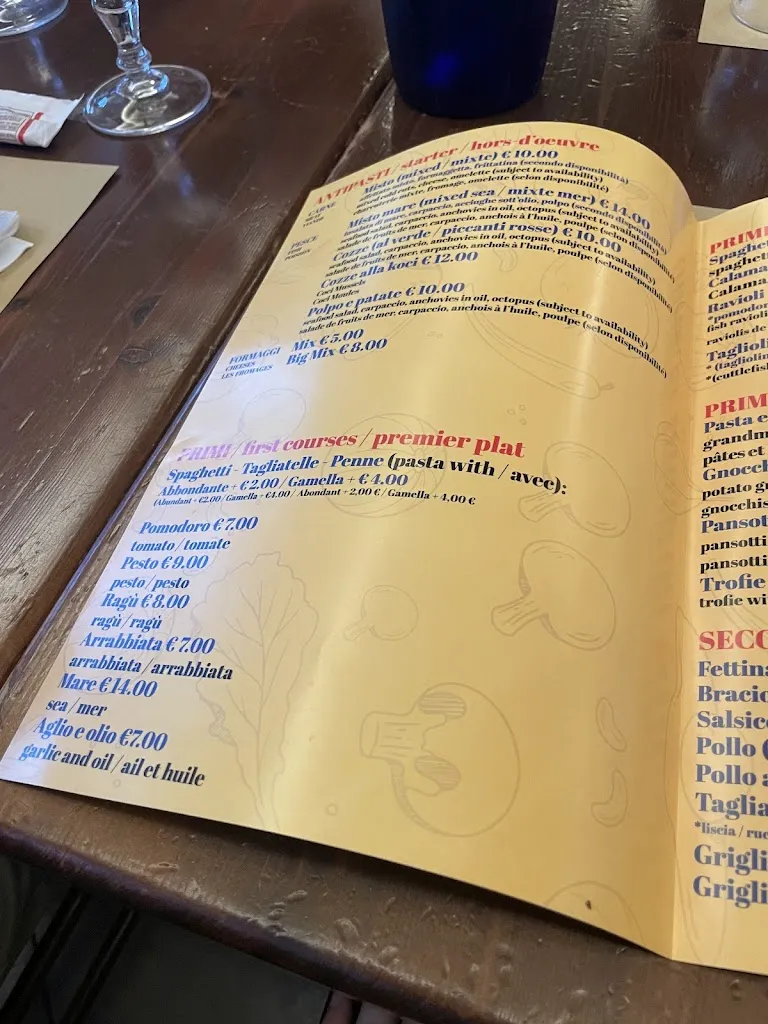 ANTIPASTI / starter / hors-d'oeuvre
CARNE
MEAT
VIANDE
Misto (mixed / mixte) € 10.00
affettato misto, formaggetta, frittatina (secondo disponibilità)
mixed cold cuts, cheese, omelette (subject to availability)
charcuterie mixte, fromage, omelette (selon disponibilité)
PESCE
FISH
POISSON
Misto mare (mixed sea / mixte mer) € 14.00
insalata di mare, carpaccio, acciughe sott'olio, polpo (secondo disponibilità)
seafood salad, carpaccio, anchovies in oil, octopus (subject to availability)
salade de fruits de mer, carpaccio, anchois à l'huile, poulpe (selon disponibilité)
Cozze (al verde / piccanti rosse) € 10.00
seafood salad, carpaccio, anchovies in oil, octopus (subject to availability)
salade de fruits de mer, carpaccio, anchois à l'huile, poulpe (selon disponibilité)
Cozze alla koci € 12.00
Coci Mussels
Coci Moules
Polpo e patate € 10.00
seafood salad, carpaccio, anchovies in oil, octopus (subject to availability)
salade de fruits de mer, carpaccio, anchois à l'huile, poulpe (selon disponibilité)
FORMAGGI
CHEESES
LES FROMAGES
Mix € 5.00
Big Mix € 8.00
PRIMI / first courses / premier plat
Spaghetti - Tagliatelle - Penne (pasta with / avec):
Abbondante + € 2,00 / Gamella + € 4.00
(Abundant + €2.00 / Gamella + €4.00 / Abondant + 2,00 € / Gamella + 4,00 €
Pomodoro € 7.00
tomato / tomate
Pesto € 9.00
pesto / pesto
Ragù € 8.00
ragù / ragù
Arrabbiata € 7.00
arrabbiata / arrabbiata
Mare € 14.00
sea / mer
Aglio e olio €7.00
garlic and oil / ail et huile
PRIMI
Spaghe
spaghet
Calama
Calama
Ravioli
*pomodor
fish ravioli
raviolis de
Taglioli
* (tagliolin
*(cuttlefis
PRIM
Pasta e
grandm
pâtes et
Gnocc
potato g
gnocchis
Pansot
pansotti
pansotti
Trofie
trofie wi
SECO
Fettina
Bracio
Salsicc
Pollo (
Pollo a
Taglia
*liscia / ruc
Grigli
Grigli